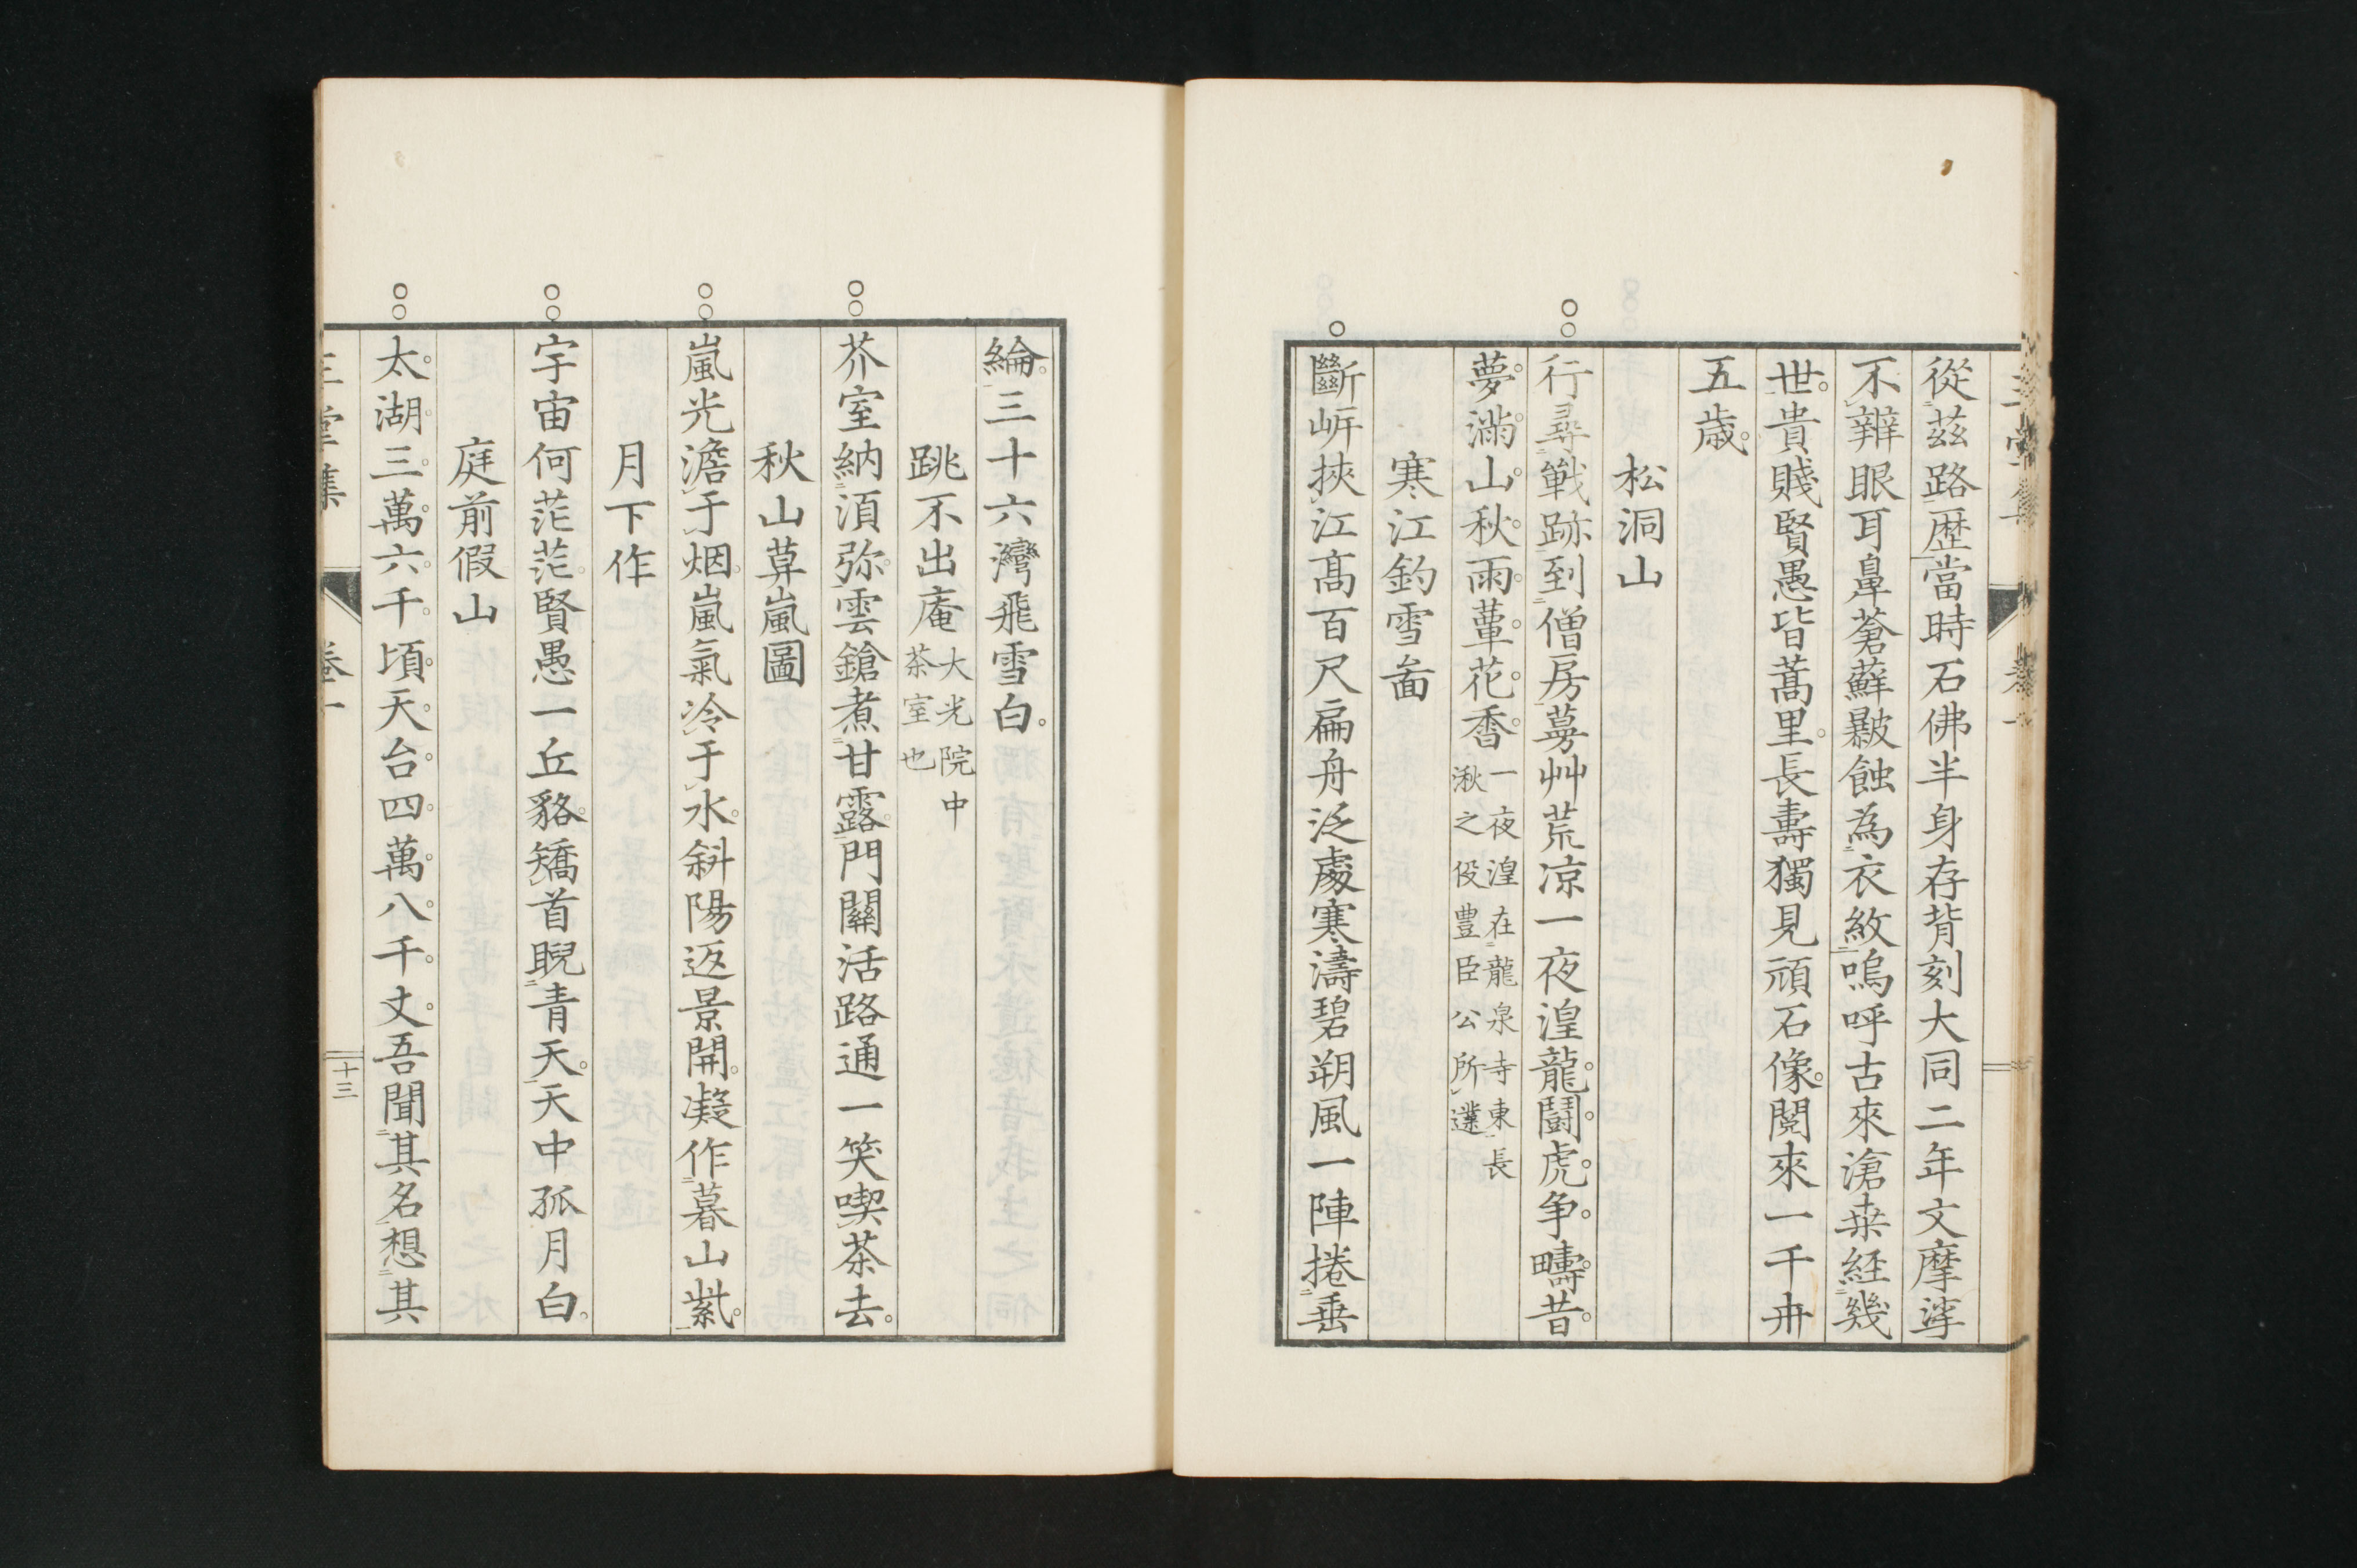 從茲路歴當時石佛半身存背刻大同二年文摩挲
不辨眼耳鼻蒼蘚皸蝕為衣紋嗚呼古來滄桒経幾
世貴賤賢愚皆蒿里長壽獨見頑石像閱來一千卅
五歳
松洞山
行尋戦跡到僧房蔓艸荒凉一夜湟龍鬪虎争疇昔
夢滿山秋雨蓽花香一夜湟在龍泉寺東長
湫之役豊臣公所
寒江釣雪啚
斷岸挾江髙百尺扁舟泛處寒濤碧朔風一陣捲垂
綸三十六灣飛雪白
跳不出庵大光院中
茶室也
芥室納湏弥雲鎗煮甘露門關活路通一笑喫茶去
秋山草嵐圖
嵐光澹于烟嵐氣冷于水斜陽返景開凝作暮山紫
月下作
宇宙何茫茫賢愚一丘貉矯首睨青天天中孤月白
庭前假山
太湖三萬六千頃天台四萬八千丈吾聞其名想其
堂集
卷一
十三